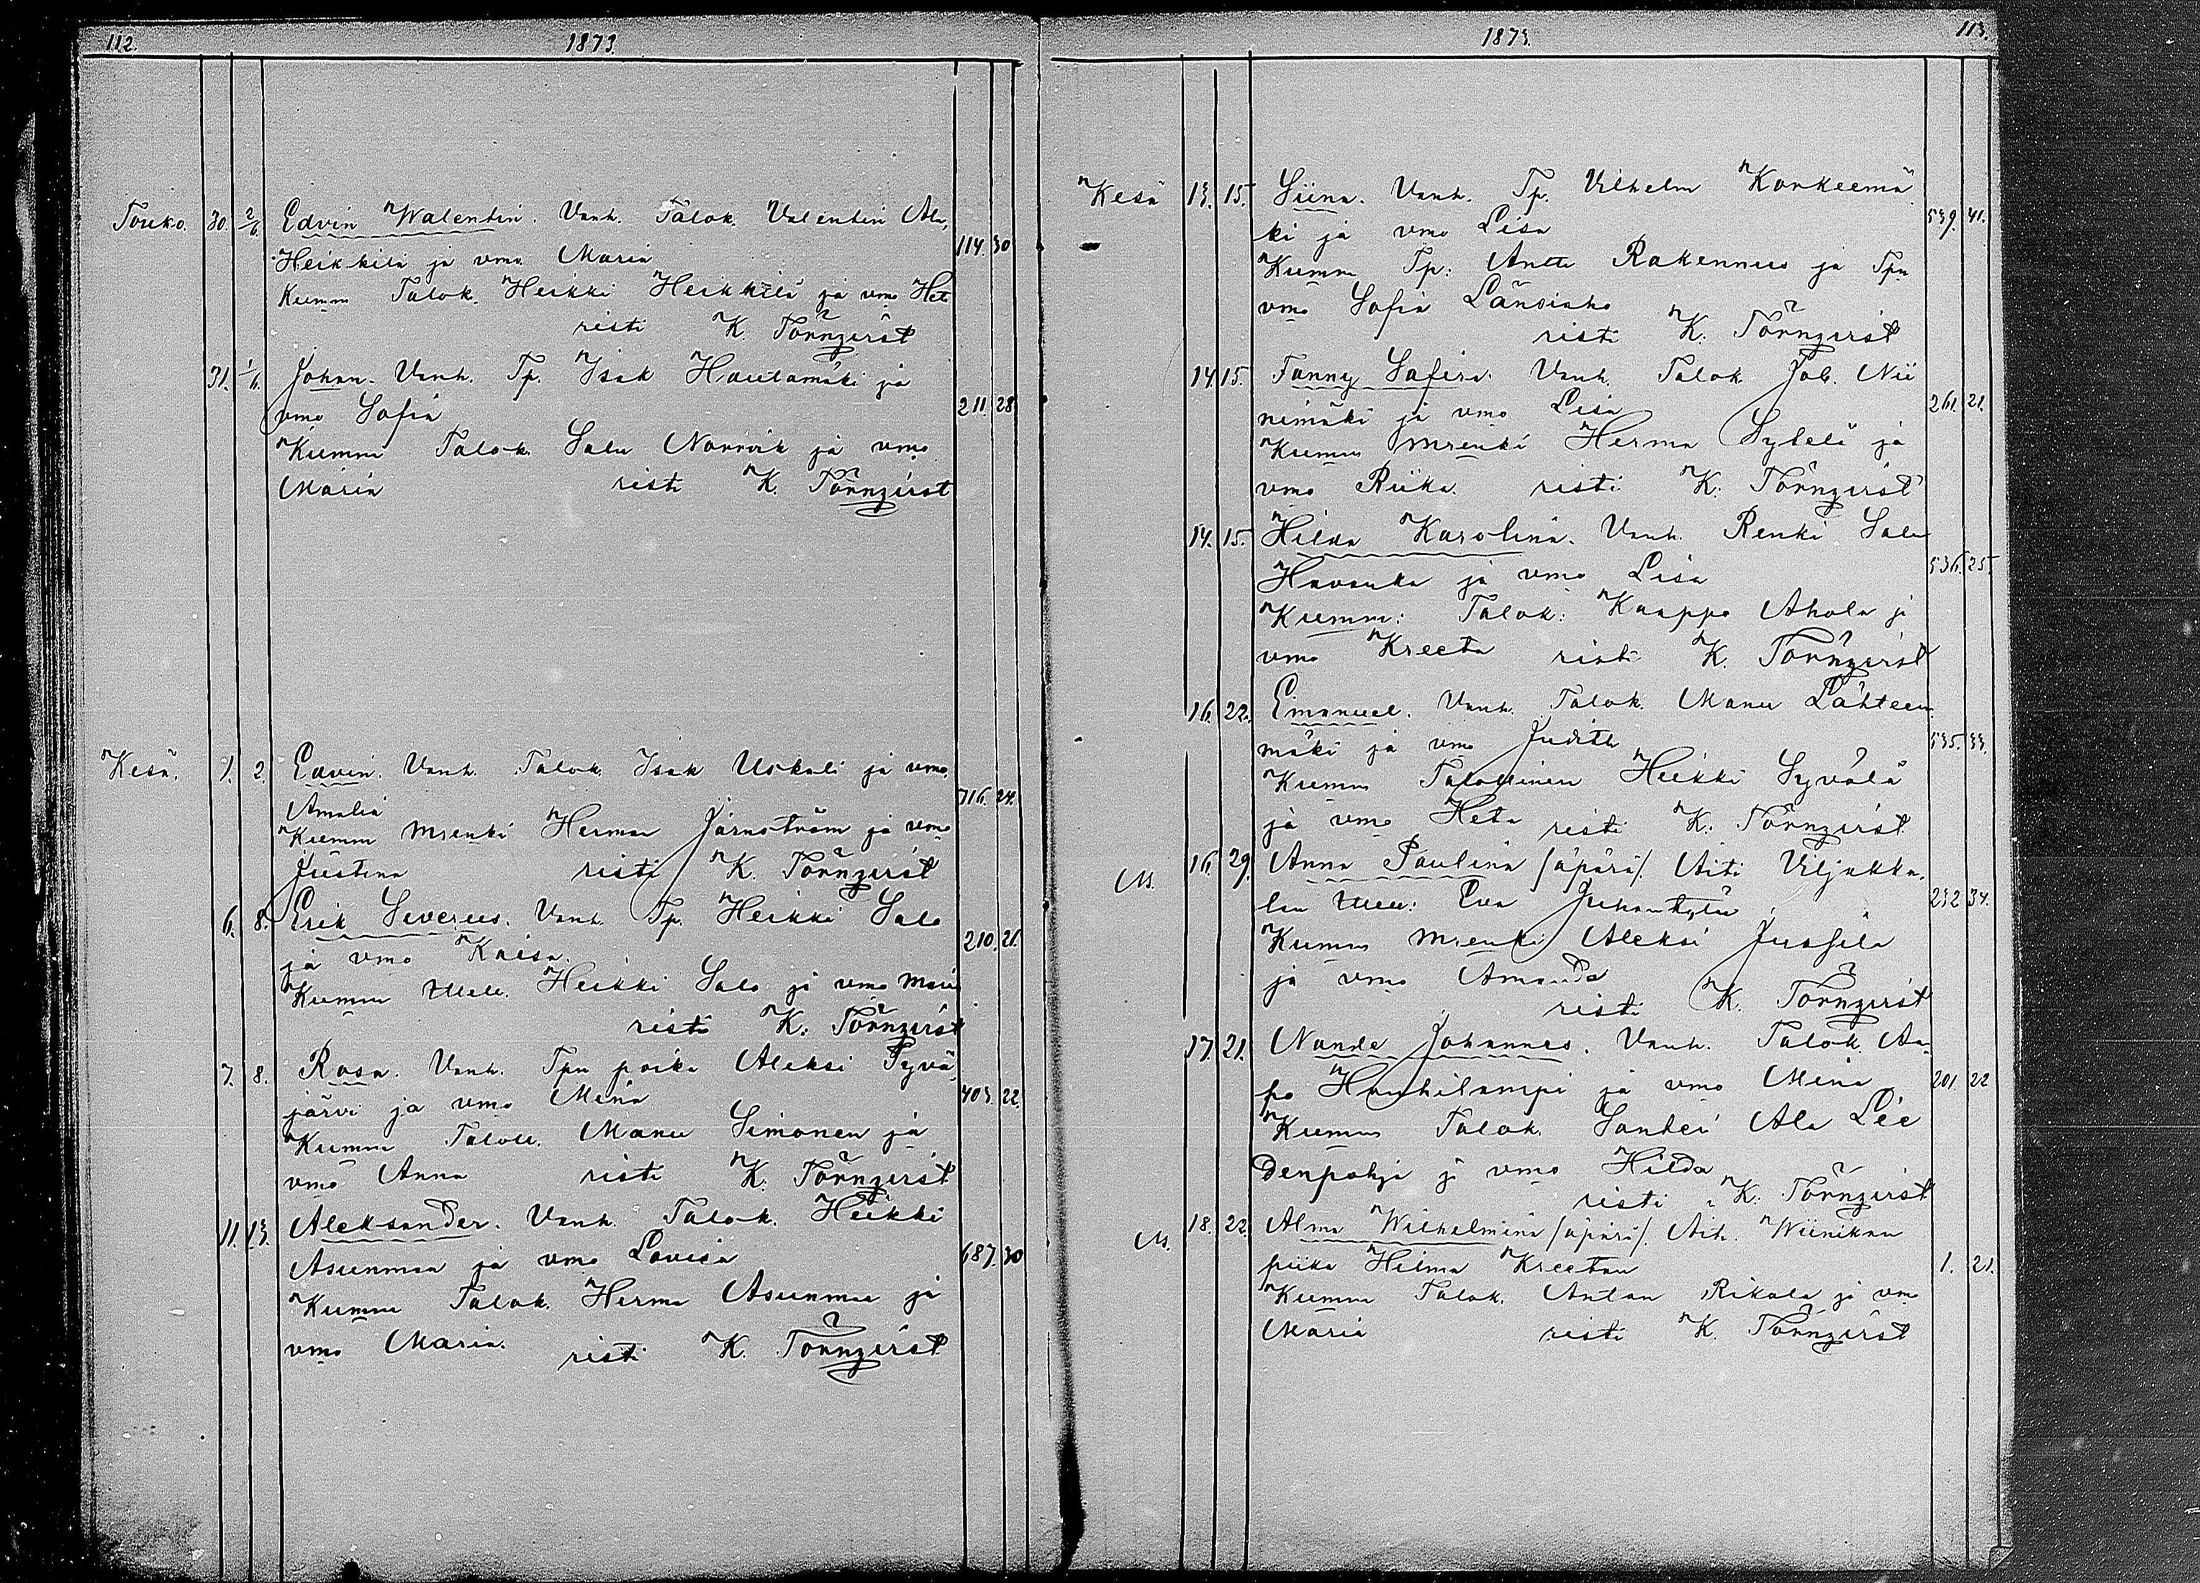 112 1873.
Touko. 30. 2/6. Edvin Walentin. Vanh. Talok. Valentin Ala,
Heikkilä ja vmo Maria 114. 30
Kumm Talok. Heikki Heikkilä ja vmo Heta
risti K. Törnqvist
31. 1/6. Johan. Vanh. Tp. Isak Hautamäki ja
vmo Sofia 211. 28
Kumm Talok. Salu Norrvik ja vmo
Maria risti K. Törnqvist
Kesä. 1. 2. Edvin. Vanh. Talok. Isak Uskali ja vmo
Amalia 716. 24.
Kumm Mrenki Herman Järnström ja vmo
Justina risti K. Törnqvist
6. 8. Erik Severus. Vanh. Tp. Heikki Salo
ja vmo Kaisa. 210. 21.
Kumm Heikki Salo ja vmo Maria
risti K. Törnqvist
7. 8. Rosa. Vanh. Tpn poika Aleksi Syvä
järvi ja vmo Mina 403. 22.
Kumm Manu Simonen ja
vmo Anna risti K. Törnqvist
11. 13. Aleksander. Vanh. Talok. Heikki
Asunmaa ja vmo Lovisa 687. 30
Kumm Talok. Herma Asunmaa ja
vmo Maria. risti K. Törnqvist
1873. 113.
Kesä 13. 15. Siina. Vanh. Tp. Vilhelm Korkeemä
ki ja vmo Lisa 539. 41.
Kumm Tp: Antti Rakennus ja Tpn
vmo Sofia Länsiaho
risti K. Törnqvist
14. 15. Fanny Safira. Vanh. Talok. Jak. Nii
nimäki ja vmo Lisa 261. 21.
Kumm Mrenki Herma Sykeli ja
vmo Riika. risti K. Törnqvist
14. 15. Hilda Karolina. Vanh. Renki Salu
Havanka ja vmo Lisa 536. 25.
Kumm: Talok: Kaappo Ahola ja
vmo Kreeta risti K. Törnqvist
16. 22. Emanuel. Vanh. Talok. Manu Lähteen
mäki ja vmo Judith 535. 33.
Kumm Talollinen Heikki Syvälä
ja vmo Heta risti K. Törnqvist
16. 29. Anna Paulina /äpärä/. Äiti Viljakka,
lan Eva 232 34.
Kumm Mrenki Aleksi Jussila
ja vmo Amanda
risti K. Törnqvist
17. 21. Nande Johannes. Vanh. Talok. Aa
po Hanhilampi ja vmo Mina 201. 22
Kumm Talok. Santei Ala Lee
denpohja ja vmo Hilda
risti K. Törnqvist
18. 22. Alma Wilhelmina /äpärä/. Äiti Wiinikan
piika Hilma Kreetan 1. 21.
Kumm Talok. Antan Rikala ja vmo
Maria risti K. Törnqvist